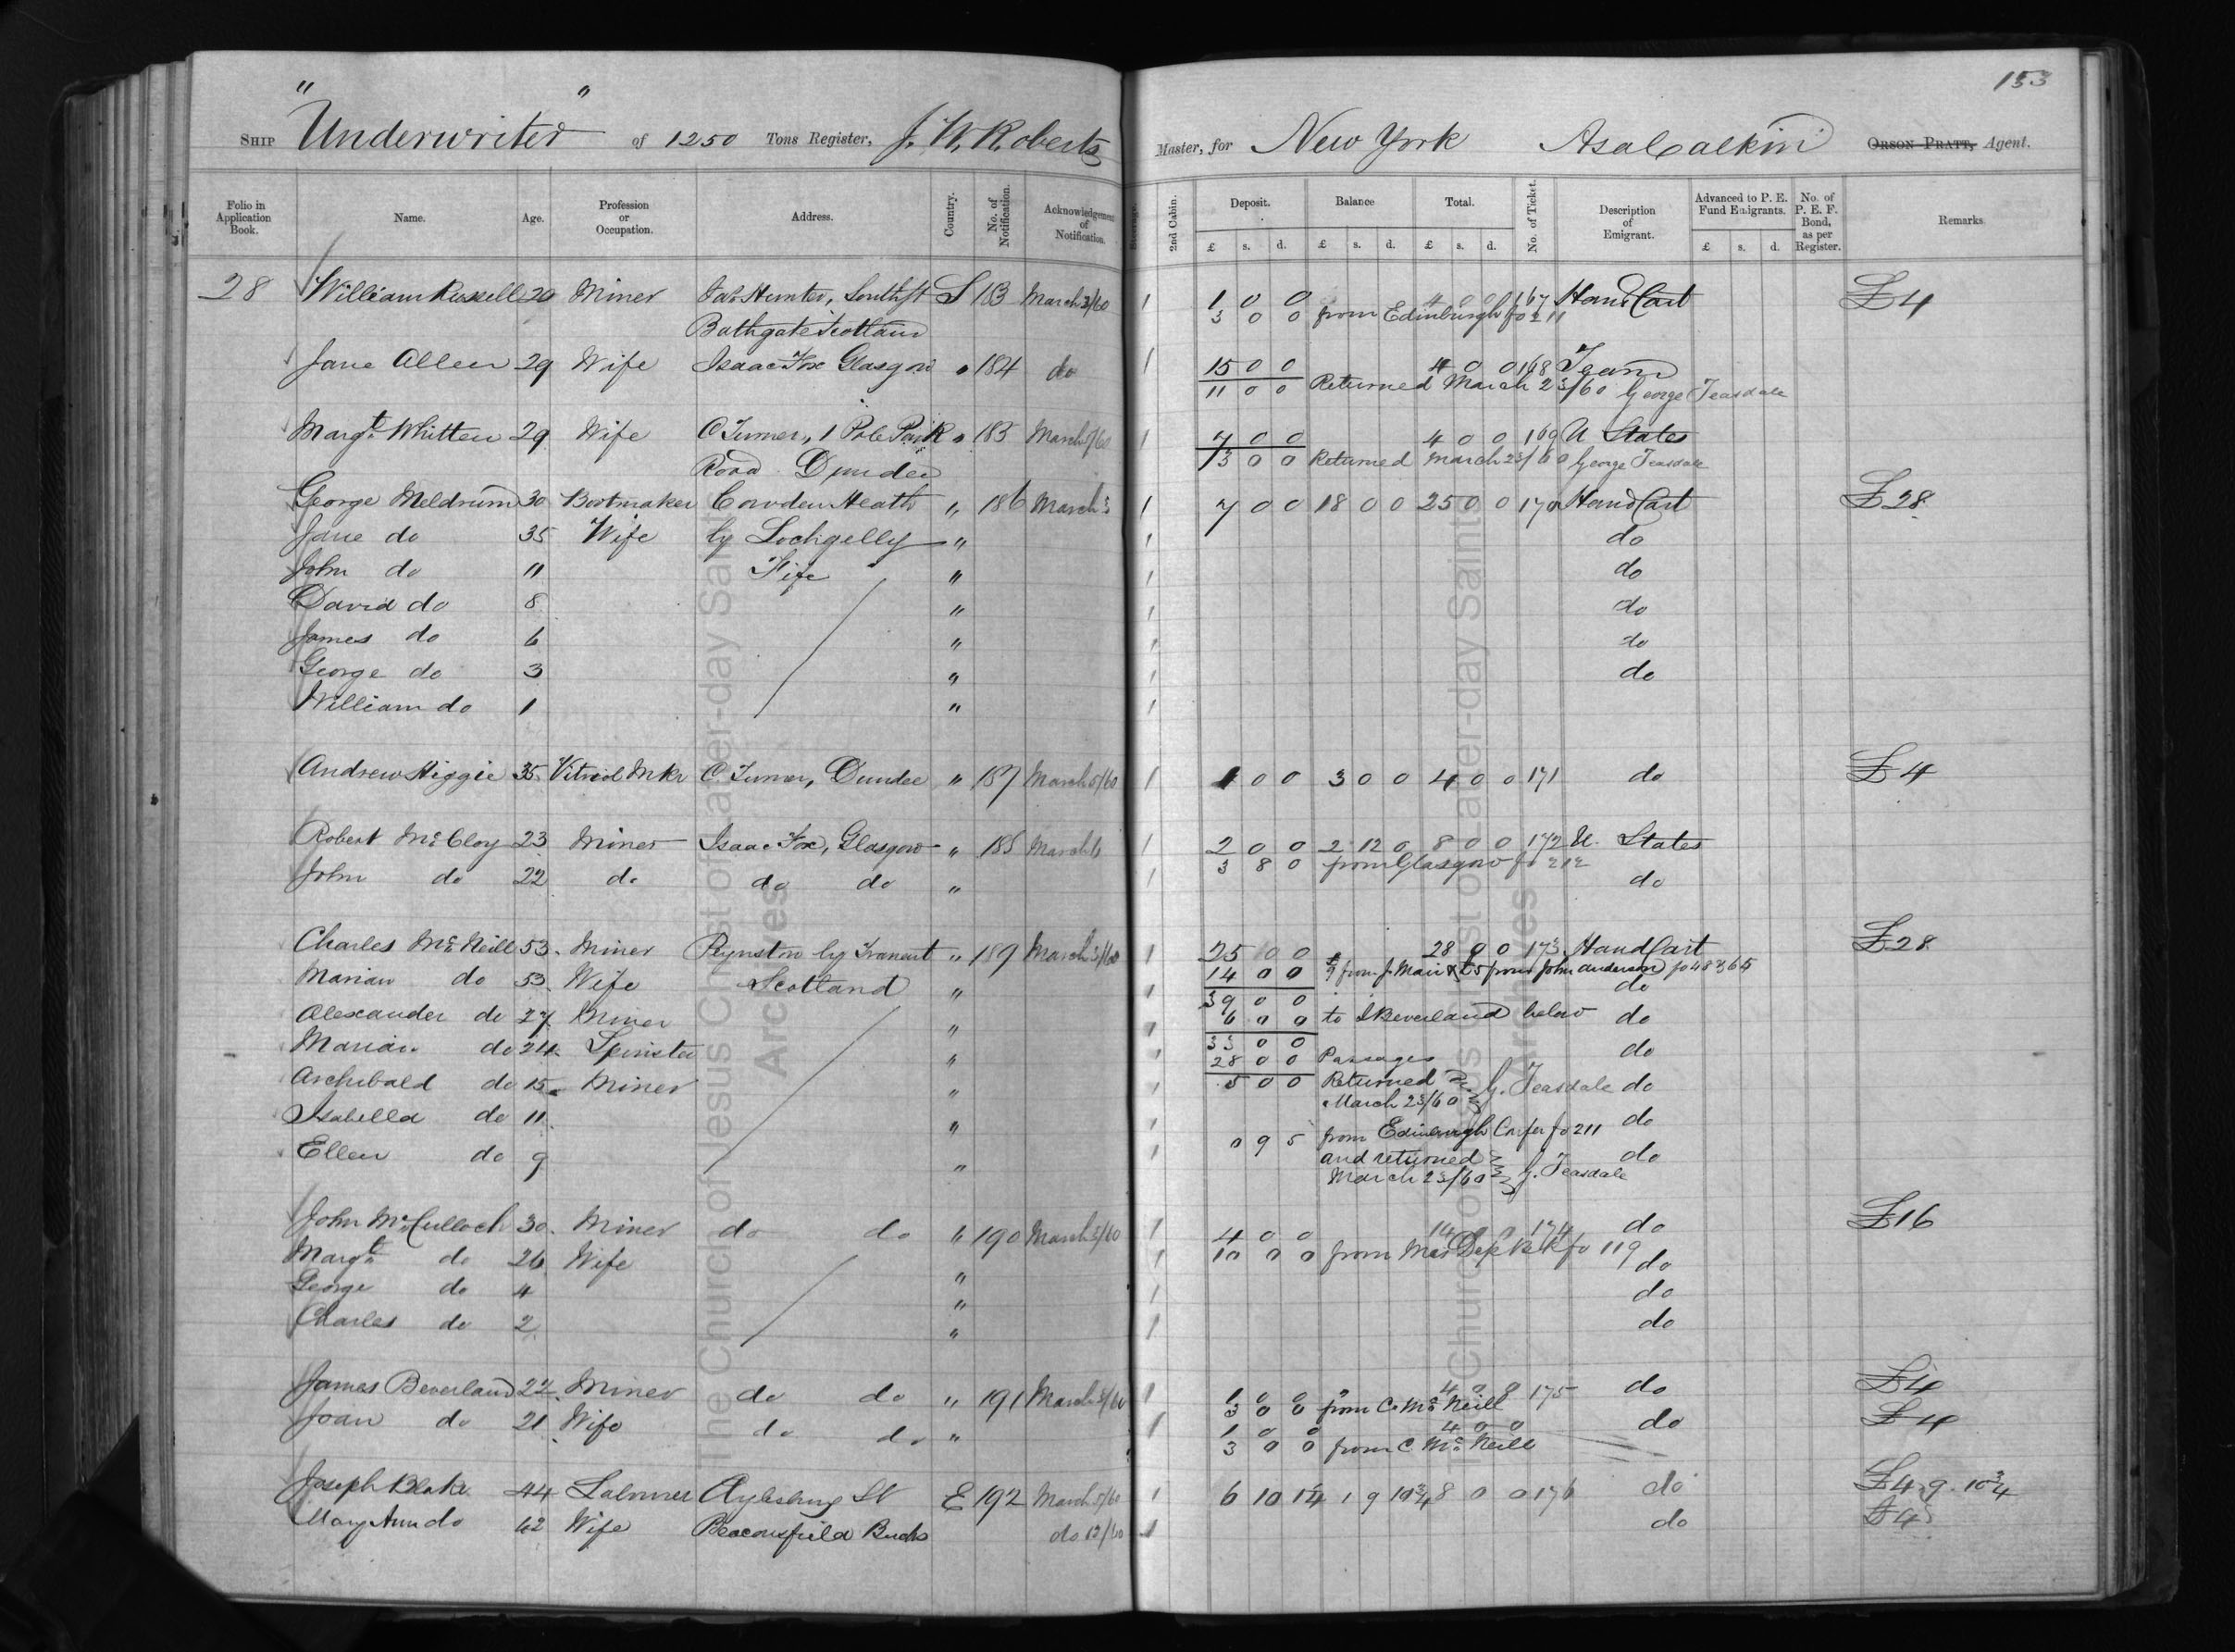 153
SHIP "Underwriter" of 1250 Tons Register, J. W. Roberts Master, for New York Asa Calkin ORSON PRATT, Agent.
Folio in Application Book. Name. Age. Profession or Occupation. Address. Country. No. of Notification. Acknowledgement of Notification. Steerage. 2nd Cabin. Deposit. Balance Total. No. of Ticket. Description of Emigrant. Advanced to P. E. Fund Emigrants. No. of P. E. F. Bond, as per Register. Remarks
£ s. d. £ s. d. £ s. d. £ s. d.
28 William Russell 20 Miner Jas Hunter, South St S 183 March 3/60 1 1 0 0 4 0 0 167 Hand Cart £4
Bathgate Scotland 3 0 0 from Edinburgh fo 211
Jane Allen 29 Wife Isaac Fox Glasgow " 184 do 1 15 0 0 4 0 0 168 Team
11 0 0 Returned March 23/60 George Teasdale
Margt Whitten 29 Wife C Turner, 1 Pole Park " 185 March 5/60 1 7 0 0 4 0 0 169 U States
Road Dundee 3 0 0 Returned March 23/60 George Teasdale
George Meldrum 30 Bootmaker Cowden Heath " 186 March 3 1 7 0 0 18 0 0 25 0 0 170 Hand Cart £28
Jane do 35 Wife by Lochgelly " 1 do
John do 11 Fife " 1 do
David do 8 " 1 do
James do 6 " 1 do
George do 3 " 1 do
William do 1 " 1
Andrew Higgie 35 Vitriol Mkr C Turner, Dundee " 187 March 5/60 1 1 0 0 3 0 0 4 0 0 171 do £4
Robert McCloy 23 Miner Isaac Fox, Glasgow " 188 March 1 2 0 0 2 12 0 8 0 0 172 U. States
3 8 0 from Glasgow fo 212
John do 22 do do do " 1 do
Charles McNeill 53 Miner Pynston by Tranent " 189 March 3/60 1 25 10 0 28 0 0 173 Hand Cart £28
14 0 0 £9 from J. Mair & £5 from John Anderson fo 48 & 65
Marian do 53 Wife Scotland " 1 do
39 0 0
Alexander do 27 Miner " 1 6 0 0 to J Beverland below do
33 0 0
Marian do 24 Spinster " 1 28 0 0 Passages do
Archibald do 15 Miner " 1 5 0 0 Returned G. Teasdale do
March 23/60
Isabella do 11 " 1 do
0 9 5 from Edinburgh Confer fo 211
Ellen do 9 " 1 and returned do
March 23/60 G. Teasdale
John McCulloch 30 Miner do do " 190 March 3/60 1 4 0 0 14 0 0 174 do £16
10 0 0 from Mas Dep Bk fo 119
Margt do 26 Wife " 1 do
George do 4 " 1 do
Charles do 2 " 1 do
James Beverland 22 Miner do do " 191 March 3/60 1 1 0 0 4 0 0 175 do £4
3 0 0 from C. McNeill
Joan do 21 Wife do do " 1 1 0 0 4 0 0 do £4
3 0 0 from C McNeill
Joseph Blake 44 Labourer Aylesbury St E 192 March 5/60 1 6 10 1¼ 1 9 10¾ 8 0 0 176 do £4. 9. 10¾
Mary Ann do 42 Wife Beaconsfield Bucks do 12/60 1 do £4
The Church of Jesus Christ of Latter-day Saints
Archives
The Church of Jesus Christ of Latter-day Saints
Archives